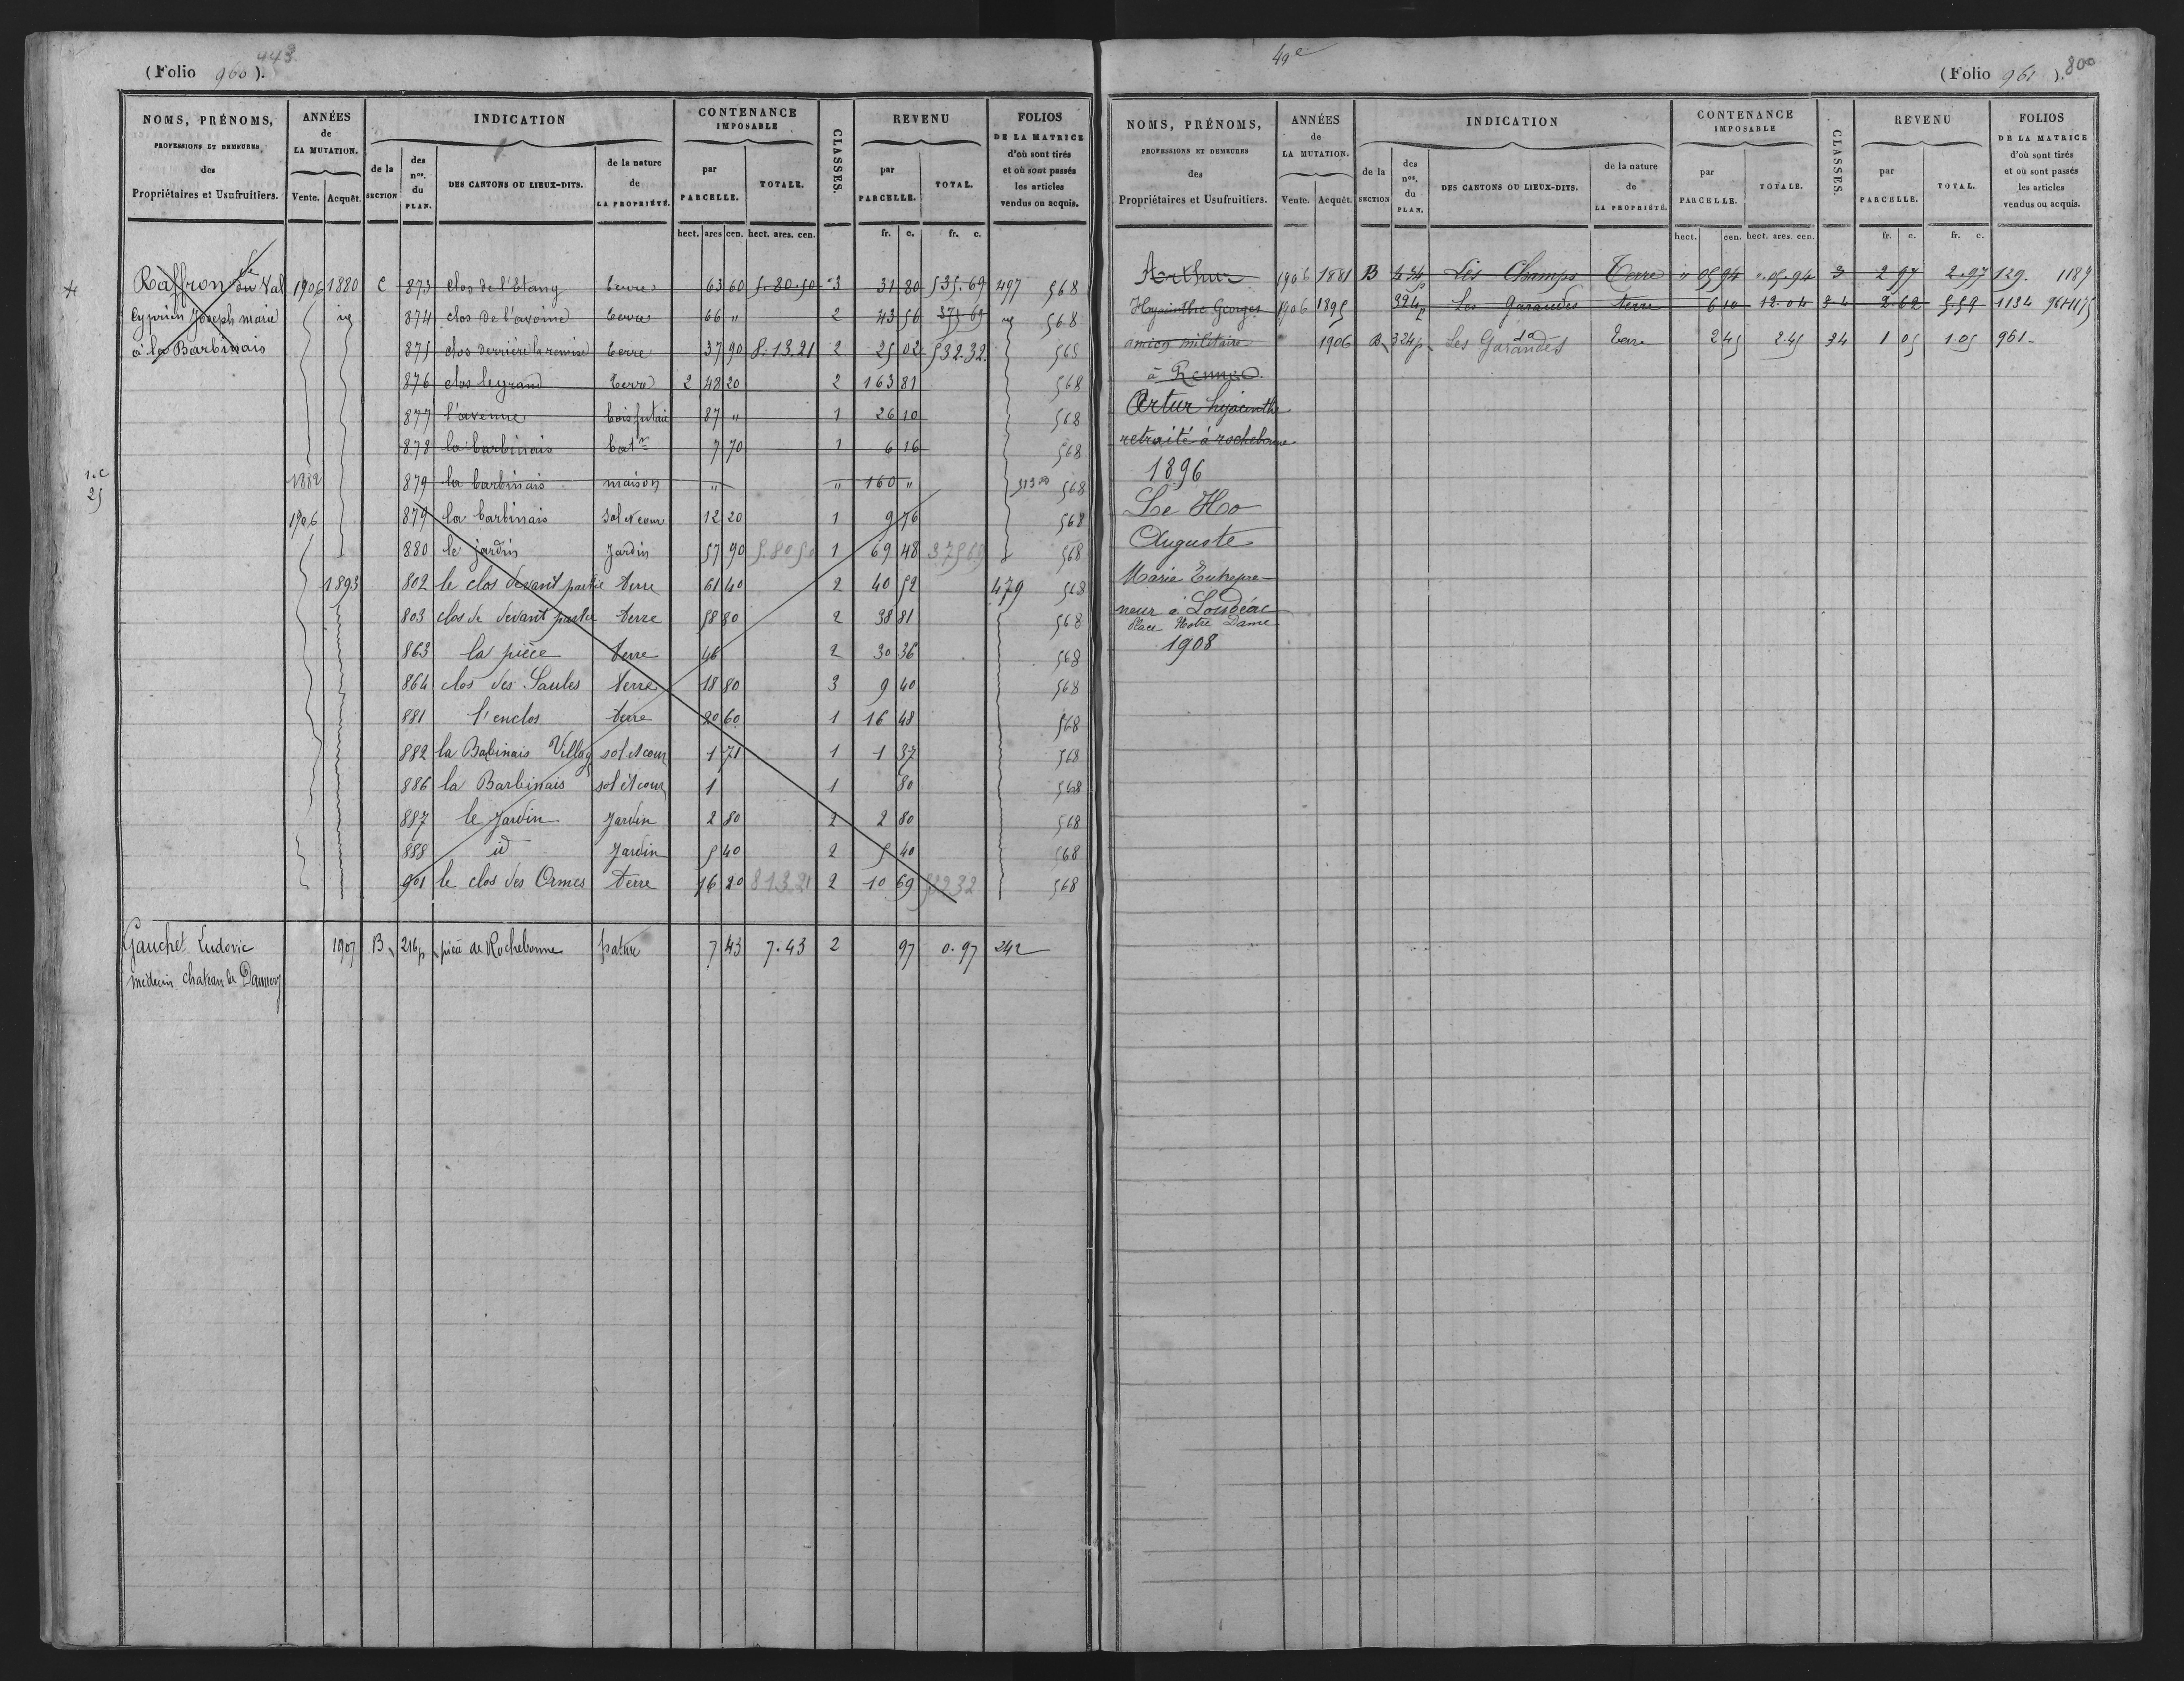 443
(Folio 960 ).
NOMS, PRÉNOMS, PROFESSIONS ET DEMEURES des Propriétaires et Usufruitiers.
ANNÉES de LA MUTATION. Vente. Acquêt.
INDICATION de la SECTION des nos. du PLAN. DES CANTONS OU LIEUX-DITS. de la nature de LA PROPRIÉTÉ.
CONTENANCE IMPOSABLE par PARCELLE. TOTALE.
CLASSES.
REVENU par PARCELLE. TOTAL.
FOLIOS DE LA MATRICE d'où sont tirés et où sont passés les articles vendus ou acquis.
hect. ares cen. hect. ares. cen. fr. c. fr. c.
Raffron de du Val 1906 1880 C 873 clos de l'Etang terre 63 60 5.80.50 3 31 80 535.69 497 568
Cyprien Joseph marie 874 clos de l'avoine terre 66 " 2 43 56 375 69 568
à la Barbinais 875 clos derrière la remise terre 37 90 8.13.21 2 25 02 532.32 568
876 clos legrand terre 2 48 20 2 163 81 568
877 l'avenue bois futaie 87 " 1 26 10 568
878 la barbinais bat.m 7 70 1 6 16 568
1.c
25
1882 879 la barbinais maison " " 160 " 568
1906 879 la barbinais sol et cour 12 20 1 9 76 568
880 le jardin jardin 57 90 5.80 50 1 69 48 375 69 568
1893 802 le clos devant partie terre 61 40 2 40 52 479 568
803 clos de devant partie terre 58 80 2 38 81 568
863 la pièce terre 46 2 30 36 568
864 clos des Saules terre 18 80 3 9 40 568
881 l'enclos terre 20 60 1 16 48 568
882 la Babinais Village sol et cour 1 71 1 1 37 568
886 la Barbinais sol et cour 1 1 80 568
887 le Jardin Jardin 2 80 2 2 80 568
888 id Jardin 5 40 2 5 40 568
901 le clos des Ormes terre 16 20 8 13 21 2 10 69 532 32 568
Gauchet Ludovic 1907 B 216p pièce de Rochebonne pature 7 43 7.43 2 97 0.97 242
médecin chateau de
49e
(Folio 961 ). 800
NOMS, PRÉNOMS, PROFESSIONS ET DEMEURES des Propriétaires et Usufruitiers.
ANNÉES de LA MUTATION. Vente. Acquêt.
INDICATION de la SECTION des nos. du PLAN. DES CANTONS OU LIEUX-DITS. de la nature de LA PROPRIÉTÉ.
CONTENANCE IMPOSABLE par PARCELLE. TOTALE.
CLASSES.
REVENU par PARCELLE. TOTAL.
FOLIOS DE LA MATRICE d'où sont tirés et où sont passés les articles vendus ou acquis.
hect. cen. hect. ares. cen. fr. c. fr. c.
Arthur 1906 1881 B Les Champs Terre " 05 94 ".05.94 3 2 97 2.97 129. 1189
Hyacinthe Georges 1906 1895 324p Les Garandes terre 6 10 12.04 3-4 2 62 5.59 1134
militaire 1906 B 324p Les Garandes Terre 2 45 2.45 34 1 05 1.05 961
à Rennes
Artur hyacinthe
retraité à rochebonne
1896
Le Ho
Auguste
Marie Entrepre-
neur à Loudéac
Place Notre Dame
1908